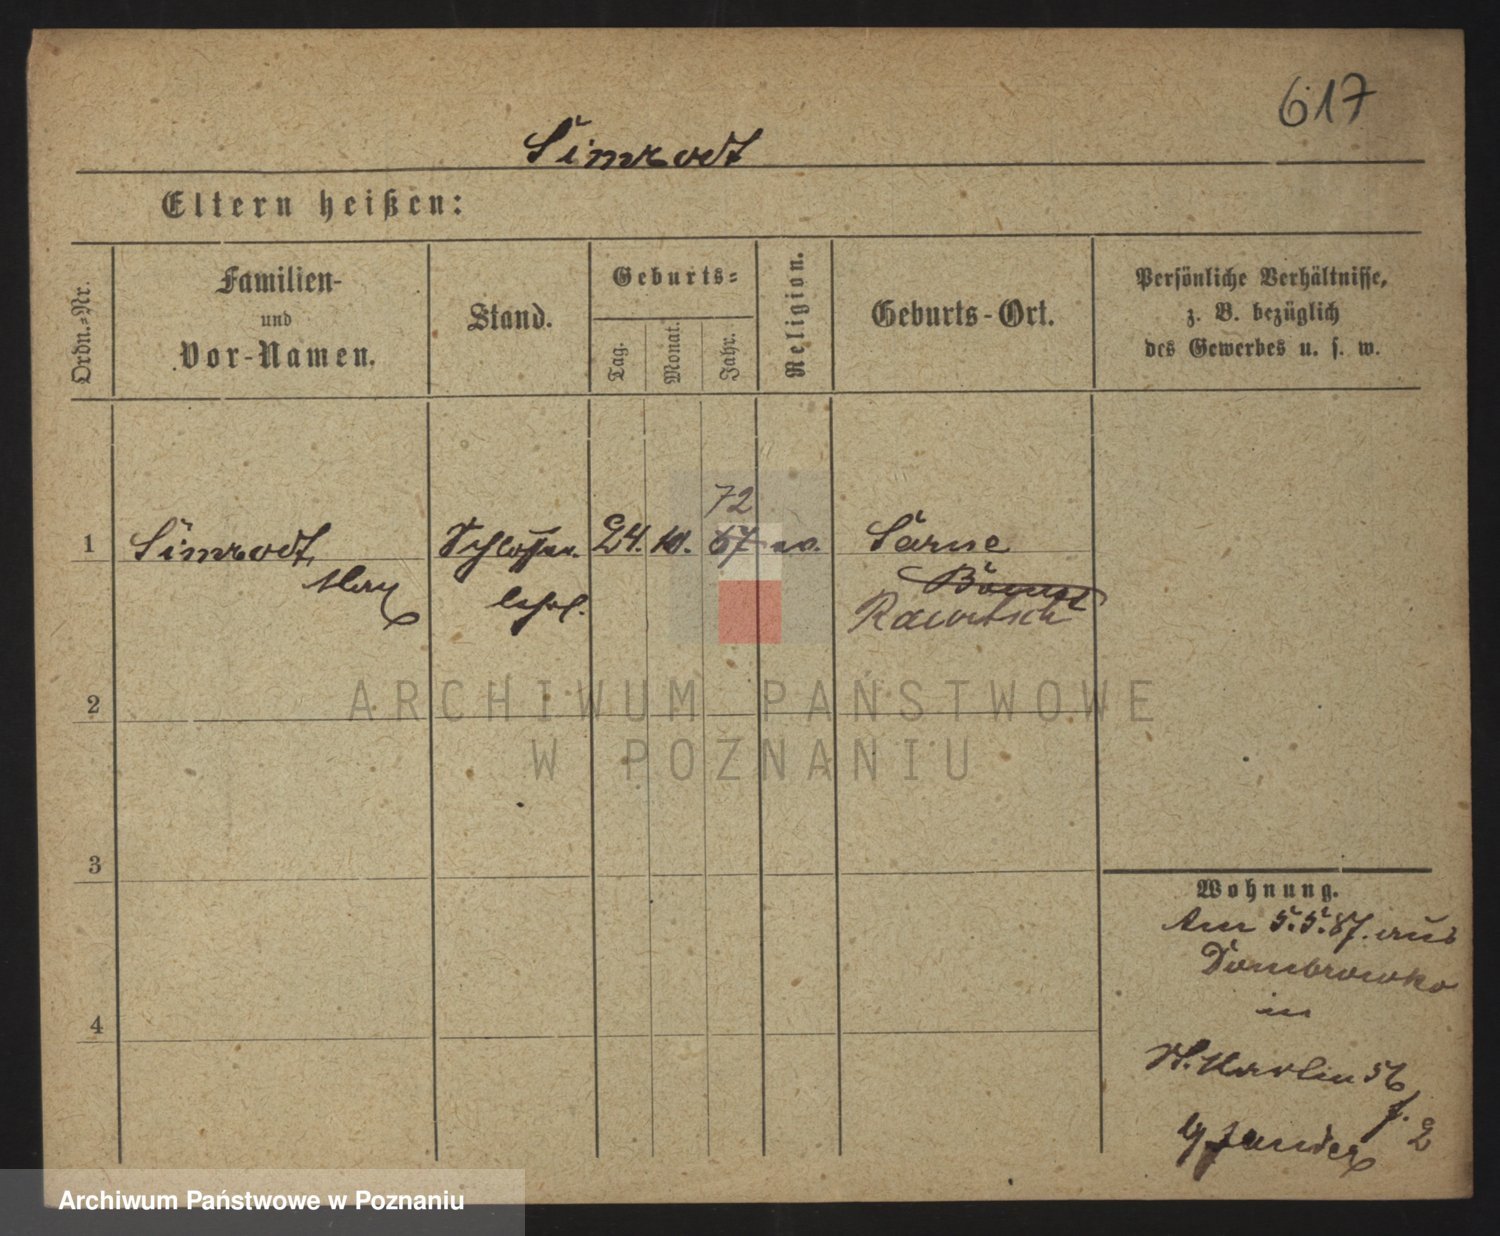 617
Simrodt
Eltern heißen:
Ordn.-Nr.
Familien-
und
Vor-Namen.
Stand.
Geburts-
Tag.
Monat.
Jahr.
Religion.
Geburts-Ort.
Persönliche Verhältnisse,
z. B. bezüglich
des Gewerbes u. s. w.
72
1 Simrodt, Schlosser- 24. 10. 67 ev. Sarne
Max lehrl.
Rawitsch
ARCHIWUM PAŃSTWOWE
2
W POZNANIU
3
Wohnung.
Am 5.5.87. aus
Dombrowka
in
4
St. Martin 56
b. 2
Archiwum Państwowe w Poznaniu